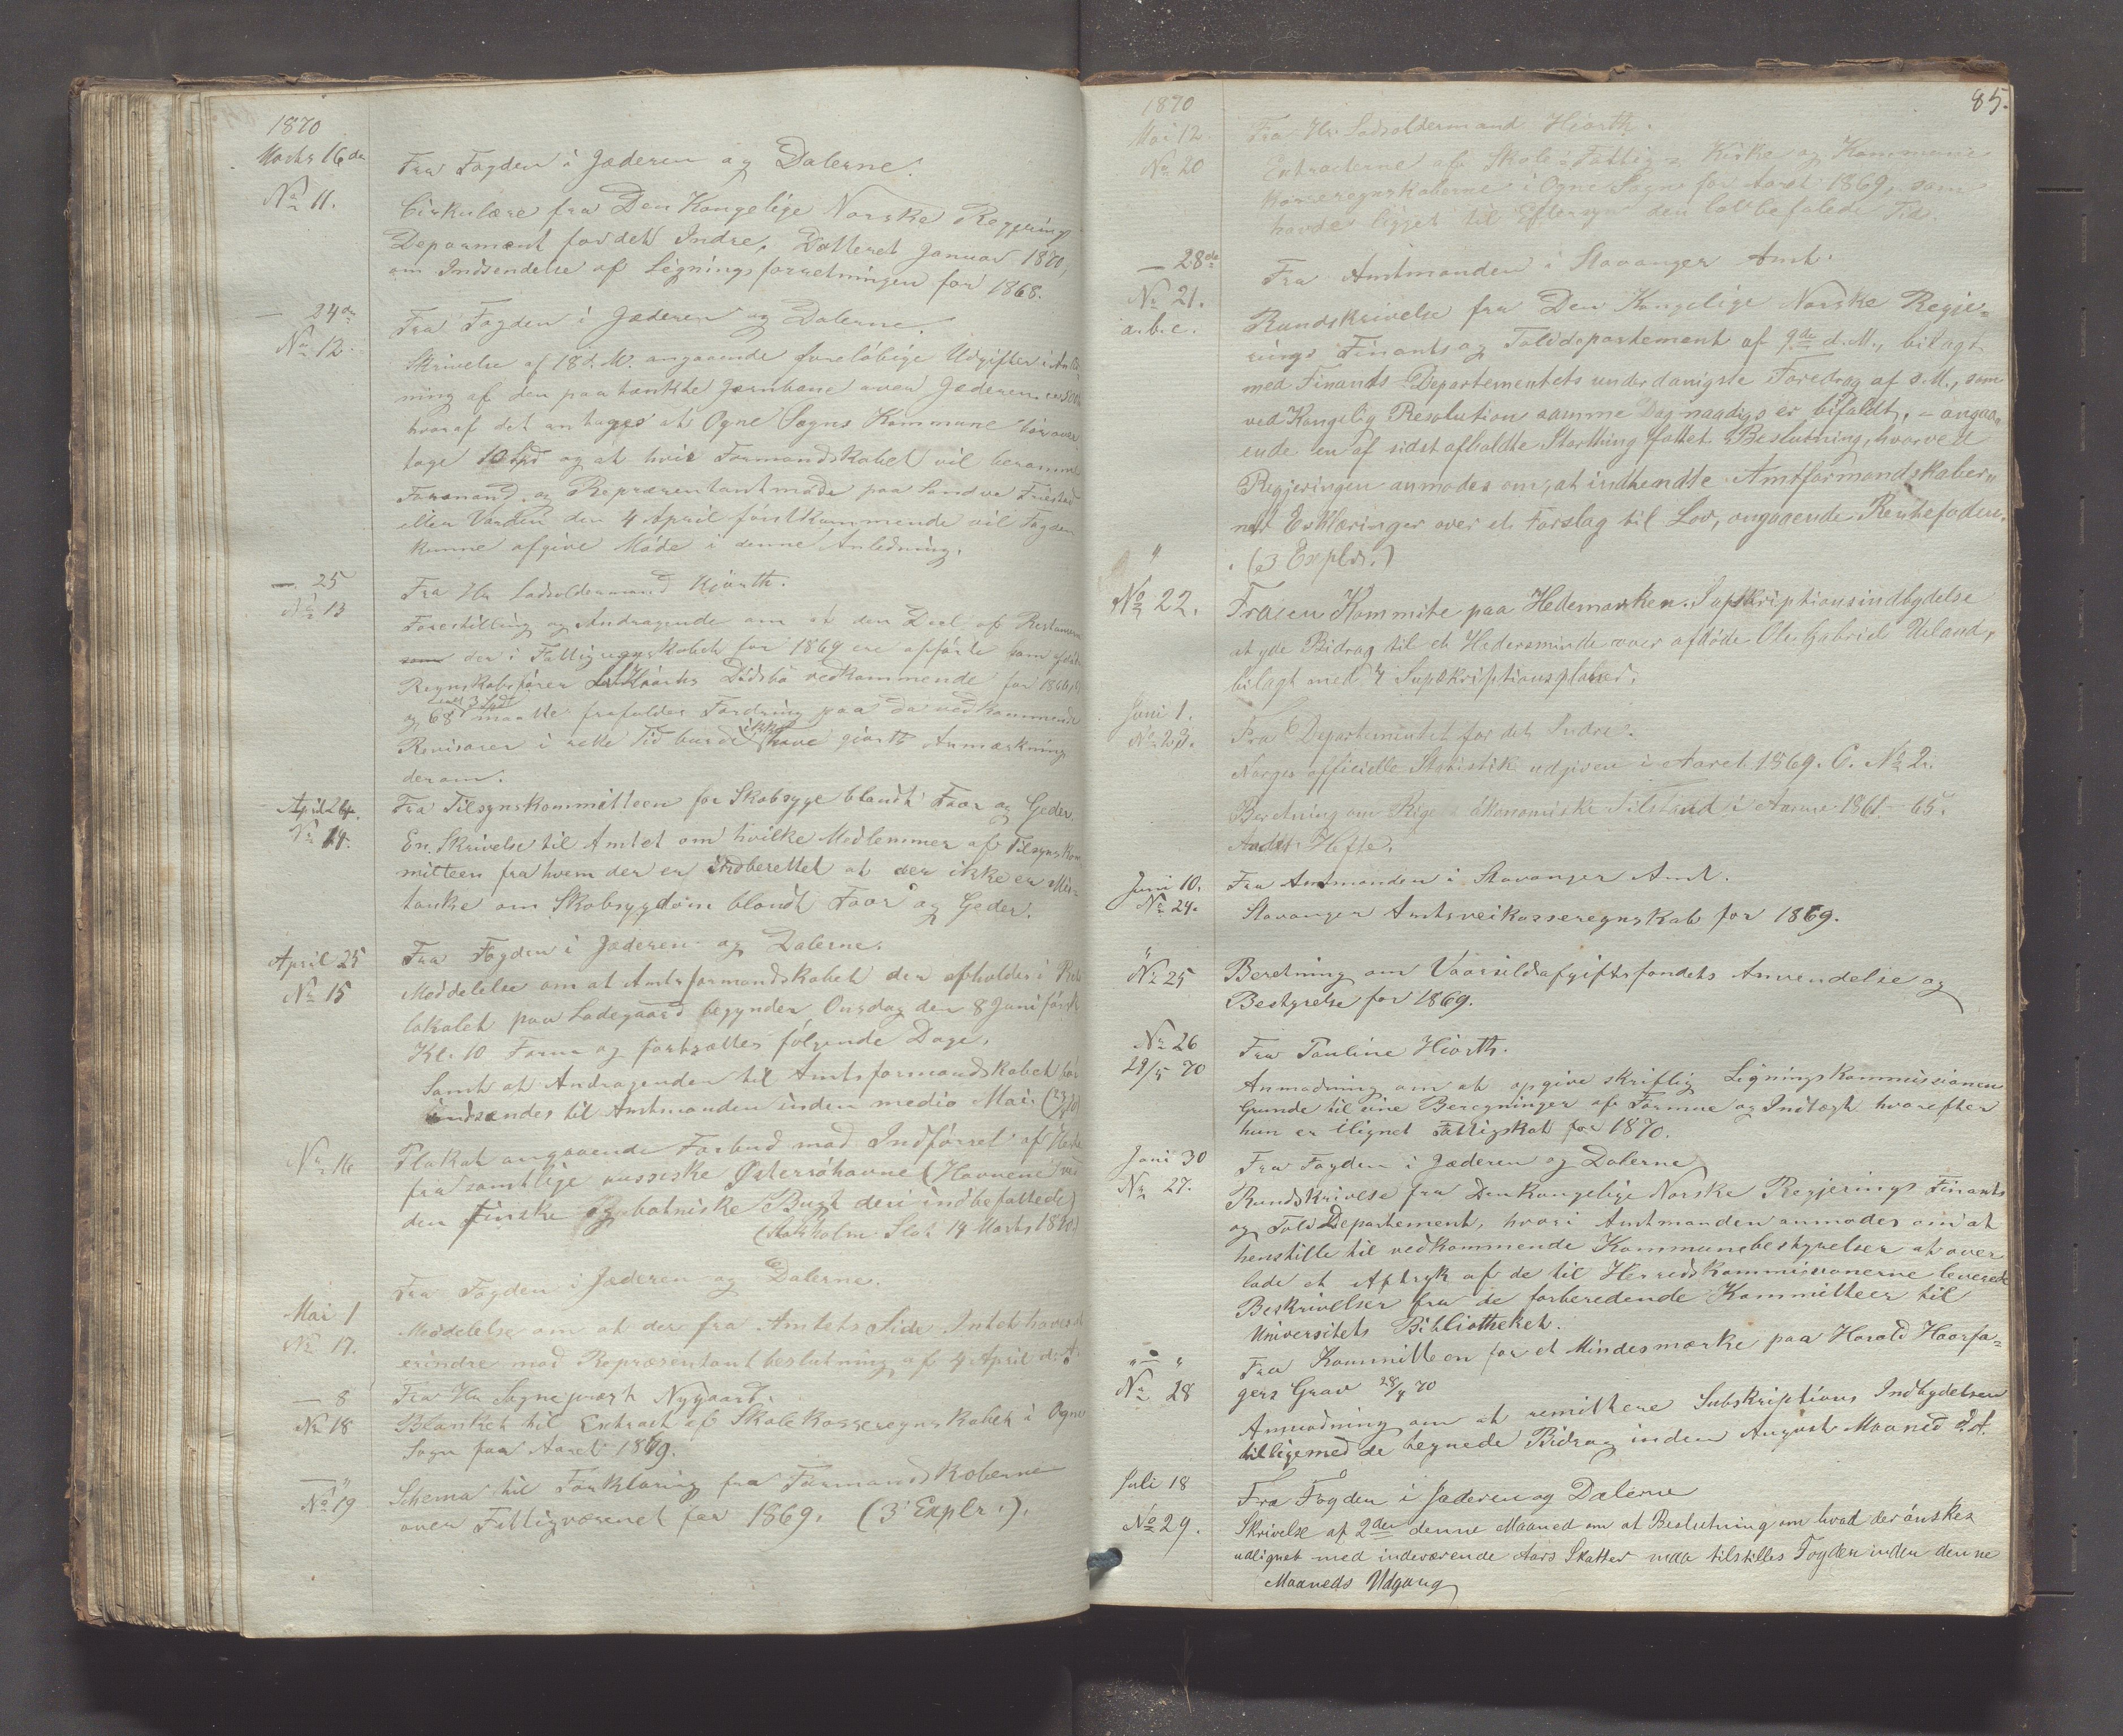 1870
Marts 16de
Fra Fogden i Jæderen og Dalerne.
No 11.
Cirkulære fra Den Kongelige Norske Regjerings
Deparment for det Indre, Datteret Januar 1870,
om Indsendelse af Ligningsforretningen for 1868.
— 24de
Fra Fogden i Jæderen og Dalerne.
No 12.
Skrivelse af 18 d. M. angaaende foreløbige Udgifter i Anled
ning af den paatænkte Jernbane over Jæderen
hvoraf det antages at Ogne Sogns Kommune bør over
tage 10 Spd og at hvis Formandskabet vil beramme
Formand. og Repræsentantmøde paa
eller Varden den 4 April førstkommende vil Fogden
kunne afgive Møde i denne Anledning.
— 25
Fra Hr Ladsoldermand Hiorth.
No 13
Forestilling og Andragende om at den Deel af Restancerne
som der i Fattigregnskabet for 1869 ere opførte som
Regnskabsfører Hiorths Dødsbo vedkommende for
og 68 maatte frafaldes Fordring paa da vedkommende
Revisorer i rette Tid burde ikke have giorth Anmærkning
derom.
April 24.
Fra Tilsynskommitteen for Skabsyge blandt Faar og Geder.
No 14.
En Skrivelse til Amtet om hvilke Medlemmer af Tilsynskom
mitteen fra hvem der er indberettet at der ikke er Mis-
tanke om Skabsygdom blandt Faar og Geder.
April 25
Fra Fogden i Jæderen og Dalerne.
No 15
Meddelelse om at Amtsformandskabet der afholdes i
lokalet paa Ladegaard begynder Onsdag den 8 Juni førstk
Kl. 10 Form og fortsættes følgende Dage.
Samt at Andragenden til Amtsformandskabet bør
indsendes til Amtmanden inden medio Mai.
No 16
Plakat angaaende Forbud mod Indførsel af
fra samtlige russiske Østersøhavne (Havnene ved
den finske og botniske Bugt deri indbefattede)
(Stokholm Slot 14 Marts 1870)
Fra Fogden i Jæderen og Dalerne.
Mai 1
No 17.
Meddelelse om at der fra Amtets Side Intet haves at
erindre mod Repræsentantbeslutning af 4 April d. A.
— 8
Fra Hr Sognepræst Nygaard.
No 18
Blanket til Extract af Skolekasseregnskabet i Ogne
Sogn for Aaret 1869.
— "
No 19
Schema til Forklaring fra Formandskaberne
over Fattigvæsenet for 1869. (3 Explr.).
85.
1870
Mai 12
Fra Hr. Ladsoldermand Hiorth.
No 20
Extracterne af Skole- Fattig- Kirke og Kommune
kasseregnskaberne i Ogne Sogn for Aaret 1869, som
havde ligget til Eftersyn den lovbefalede Tid.
— 28de
Fra Amtmanden i Stavanger Amt.
No 21.
a. b. c.
Rundskrivelse fra Den Kongelige Norske Regje-
rings Finants og Tolddepartement af 9de d. M., bilagt
med Finants Departementets underdanigste Foredrag af s. M., som
ved Kongelig Resolution samme Dag naadigs er bifaldt, – angaa-
ende en af sidst afholdte Storthing fattet Beslutning, hvorved
Regjeringen anmodes om, at indhendte Amtformandskaber-
nes Erklæringer over et Forslag til Lov, angaaende Rentefoden.
(3 Explr.)
"
No 22.
Fra en Kommite paa Hedemarken. Supskriptionsindbydelse
at yde Bidrag til et Hædersminde over afdøde Ole Gabriel Ueland,
bilagt med 4 Supskriptionsplakad.
Juni 1.
Fra Departementet for det Indre.
No 23.
Norges officielle Statistik udgiven i Aaret 1869. C. No 2.
Beretning om Rigets økonomiske Tilstand i Aarene 1861–65.
Andet Hefte.
Juni 10.
Fra Amtmanden i Stavanger Amt.
No 24.
Stavanger Amtsveikasseregnskab for 1869.
"
No 25
Beretning om Vaarsildafgiftsfondets Anvendelse og
Bestyrelse for 1869.
No 26
Fra Pauline Hiorth.
29/5 70
Anmodning om at opgive skriftlig Ligningskommissionens
Grunde til sine Beregninger af Formue og Indtægt hvorefter
hun er ilignet Fattigskat for 1870.
Juni 30
Fra Fogden i Jæderen og Dalerne
No 27.
Rundskrivelse fra Den kongelige Norske Regjerings Finants
og Told Departement, hvori Amtmanden anmodes om at
henstille til vedkommende Kommunebestyrelser at over
lade et Aftryk af de til Herredskommissionerne leverede
Beskrivelser fra de forberedende Kommitteer til
Universitets Bibliotheket.
" — "
Fra Kommitteen for et Mindesmærke paa Harald Haarfa-
No 28
gers Grav 28/4 70
Anmodning om at remittere Subskriptions Indbydelsen
tilligemed de tegnede Bidrag inden August Maaned d. A.
Juli 18
Fra Fogden i Jæderen og Dalerne
No 29.
Skrivelse af 2den denne Maaned om at Beslutning om hvad der ønskes
udlignet med indeværende Aars Skatter maa tilstilles Fogden inden denne
Maaneds Udgang